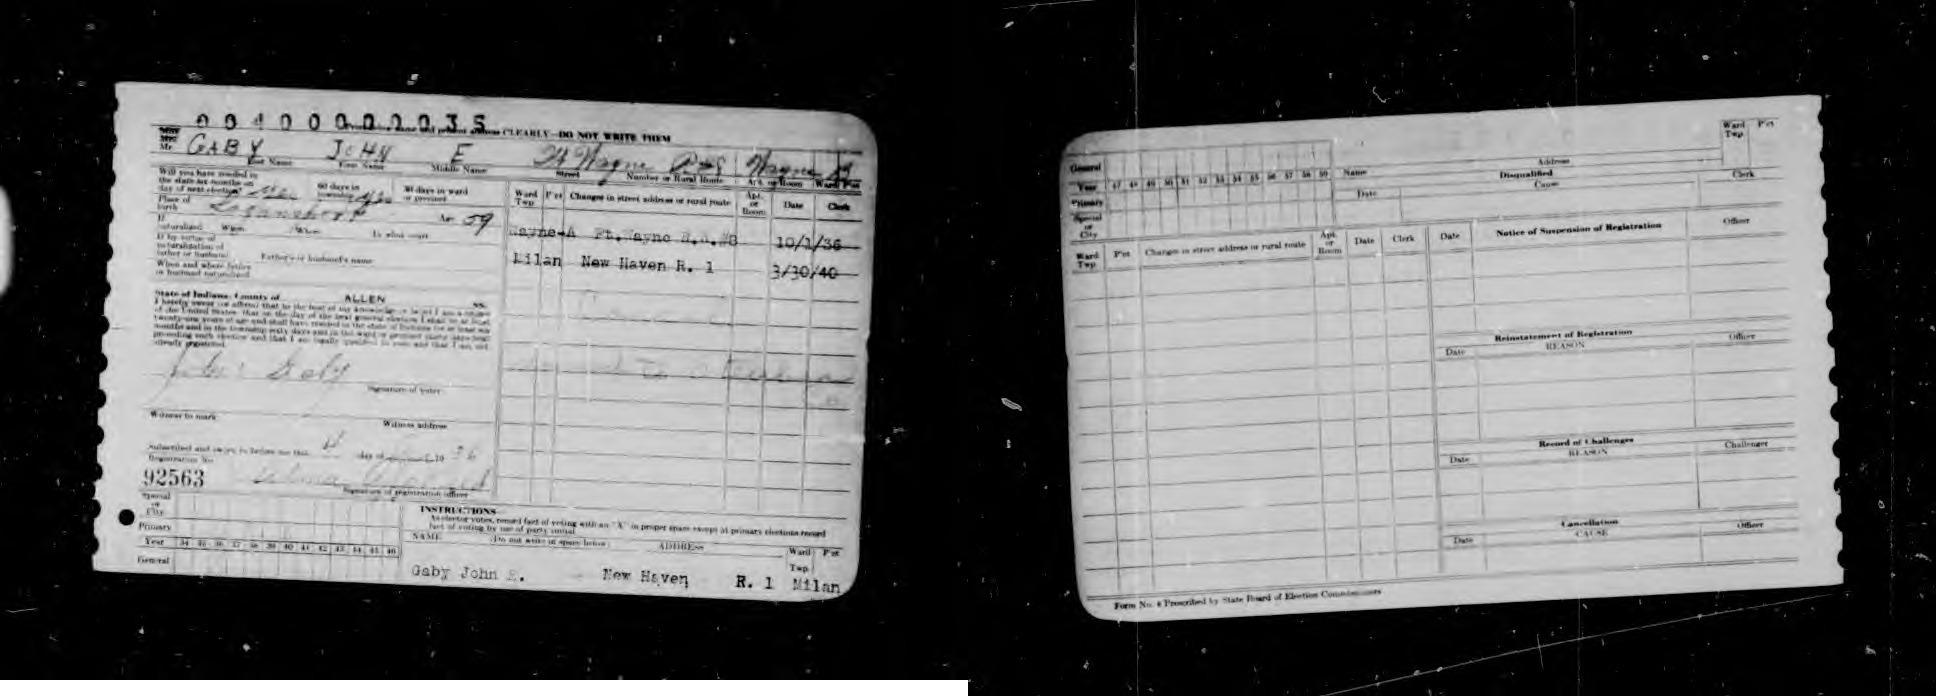 0040000035
name and present address CLEARLY—DO NOT WRITE THEM
Mrs
Mr GABY JOHN E Ft Wayne R#8 Wayne
Last Name First Name Middle Name Street Number or Rural Route Apt. or Room Ward Pct
Will you have resided in
the state six months on
day of next election? Yes 60 days in township Yes 30 days in ward or precinct
Place of
birth Age 59
If
naturalized When Where In what court
If by virtue of
naturalization of
father or husband Father's or husband's name
When and where father
or husband naturalized
State of Indiana, County of ALLEN ss.
I hereby swear (or affirm) that to the best of my knowledge or belief I am a citizen
of the United States; that on the day of the next general election I shall be at least
twenty-one years of age and shall have resided in the state of Indiana for at least six
months and in the township sixty days and in the ward or precinct thirty days next
preceding such election and that I am legally qualified to vote and that I am not
already registered.
John Gaby
Signature of voter
Witness to mark Witness address
Subscribed and sworn to before me this day of 19 36
Registration No.
92563
Signature of registration officer
Ward Twp P'ct Changes in street address or rural route Apt. or Room Date Clerk
Wayne-A Ft. Wayne R.R. #8 10/1/36
Milan New Haven R. 1 3/30/40
Special
or
City
Primary
Year 34 35 36 37 38 39 40 41 42 43 44 45 46
General
INSTRUCTIONS
As elector votes, record fact of voting with an "A" in proper space except at primary elections record
fact of voting by use of party initial
NAME (Do not write in space below) ADDRESS Ward Twp P'ct
Gaby John E. New Haven R. 1 Milan
General
Year 47 48 49 50 51 52 53 54 55 56 57 58 59
Primary
Special
or
City
Ward Twp P'ct
Address
Name Disqualified
Date Cause Clerk
Ward Twp P'ct Changes in street address or rural route Apt. or Room Date Clerk
Date Notice of Suspension of Registration Officer
Reinstatement of Registration
Date REASON Officer
Record of Challenges
Date REASON Challenger
Cancellation
Date CAUSE Officer
Form No. 4 Prescribed by State Board of Election Commissioners